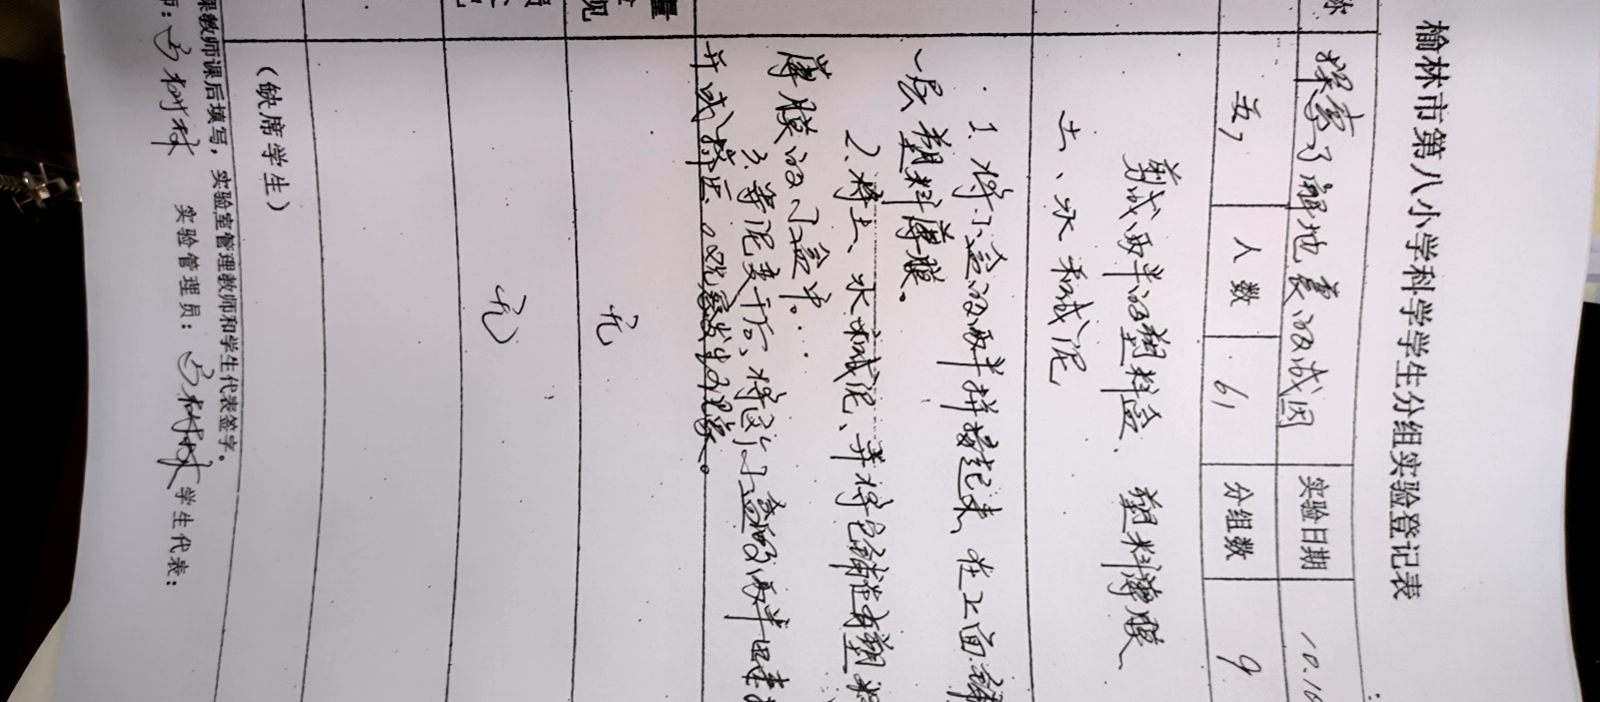 榆林市第八小学科学学生分组实验登记表
称 探索了解地震的成因 实验日期 10.16
五7 人数 61 分组数 9
剪成两半的塑料盆、塑料薄膜、
土、水和成泥
1. 将小盆的两半拼接起来,在上面铺
一层塑料薄膜。
2. 将土、水和成泥,并将它铺在有塑料
薄膜的小盆中。
3. 等泥变干后,将这个小盆的两半
并成挤压。观察发生现象。
量
现 无
无
(缺席学生)
课教师课后填写,实验室管理教师和学生代表签字。
师: 实验管理员: 学生代表: